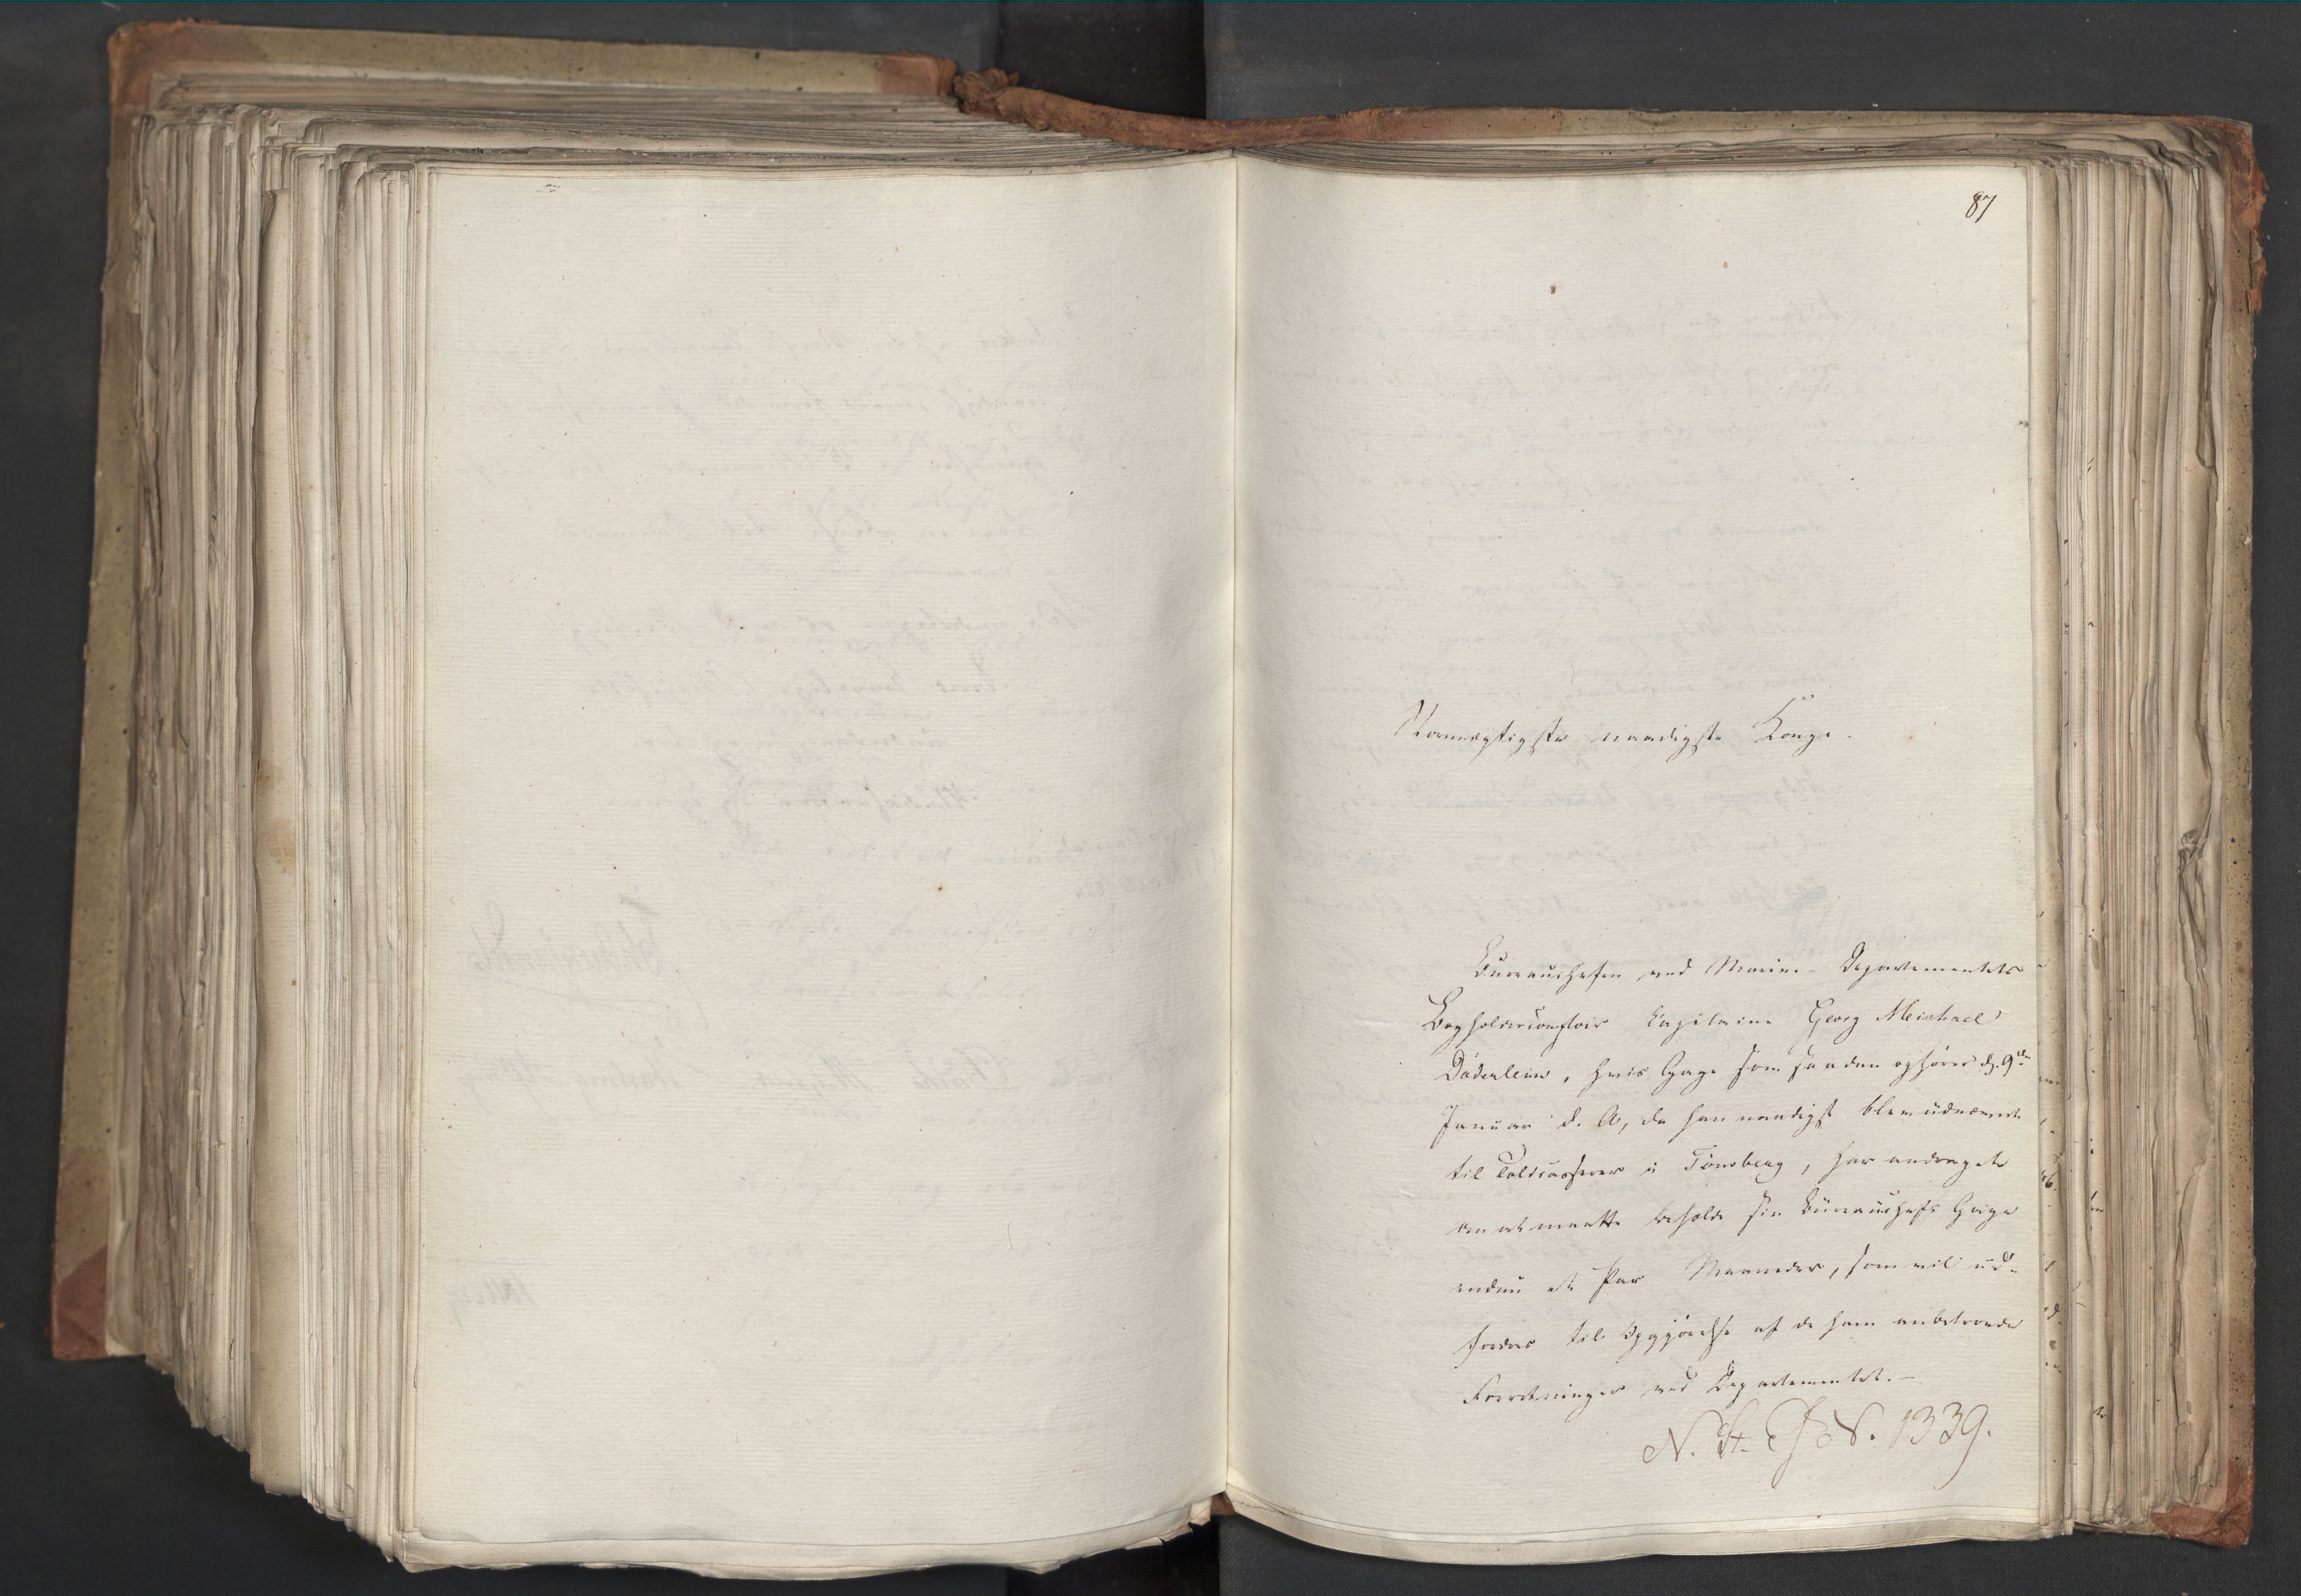 87
Stormægtigste naadigste Konge.
Bureauchefen ved Marine-Departementets
Bogholdercomptoir Capitaine Georg Meichael
Däderlein, hvis Gage som saadan ophører d. 9de
Januar d. A, da han naadigst blev udnævnt
til Toldcasserer i Tönsberg, har andraget
om at maatte beholde sin Büreauchefs Gage
endnu et Par Maaneder, som vil ud-
fordres til Opgjörelse af de ham anbetroede
Forretninger ved Departementet.—
N. St. J N. 1339.